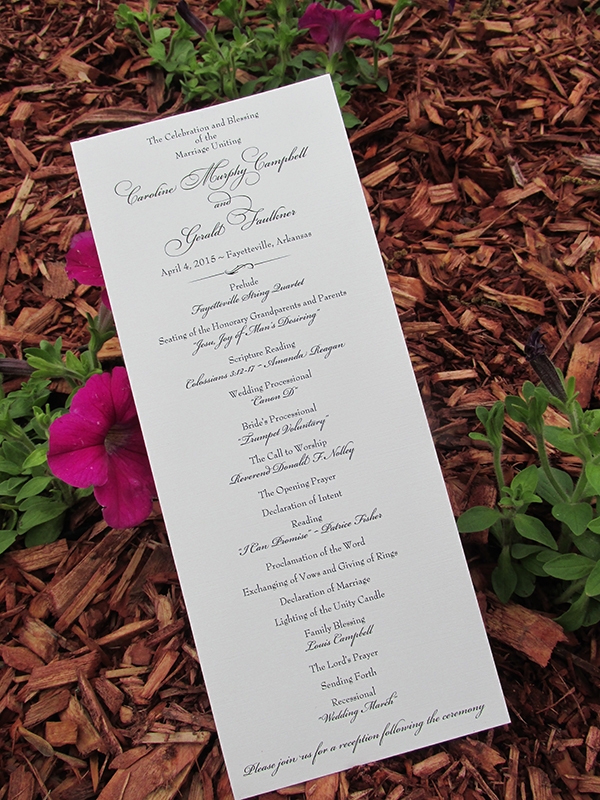 The Celebration and Blessing
of the
Marriage Uniting
Caroline Murphy Campbell
and
Gerald Faulkner
April 4, 2015 ~ Fayetteville, Arkansas
Prelude
Fayetteville String Quartet
Seating of the Honorary Grandparents and Parents
"Jesu, Joy of Man's Desiring"
Scripture Reading
Colossians 3:12-17 ~ Amanda Reagan
Wedding Processional
"Canon D"
Bride's Processional
"Trumpet Voluntary"
The Call to Worship
Reverend Donald F. Nolley
The Opening Prayer
Declaration of Intent
Reading
"I Can Promise" ~ Patrice Fisher
Proclamation of the Word
Exchanging of Vows and Giving of Rings
Declaration of Marriage
Lighting of the Unity Candle
Family Blessing
Louis Campbell
The Lord's Prayer
Sending Forth
Recessional
"Wedding March"
Please join us for a reception following the ceremony